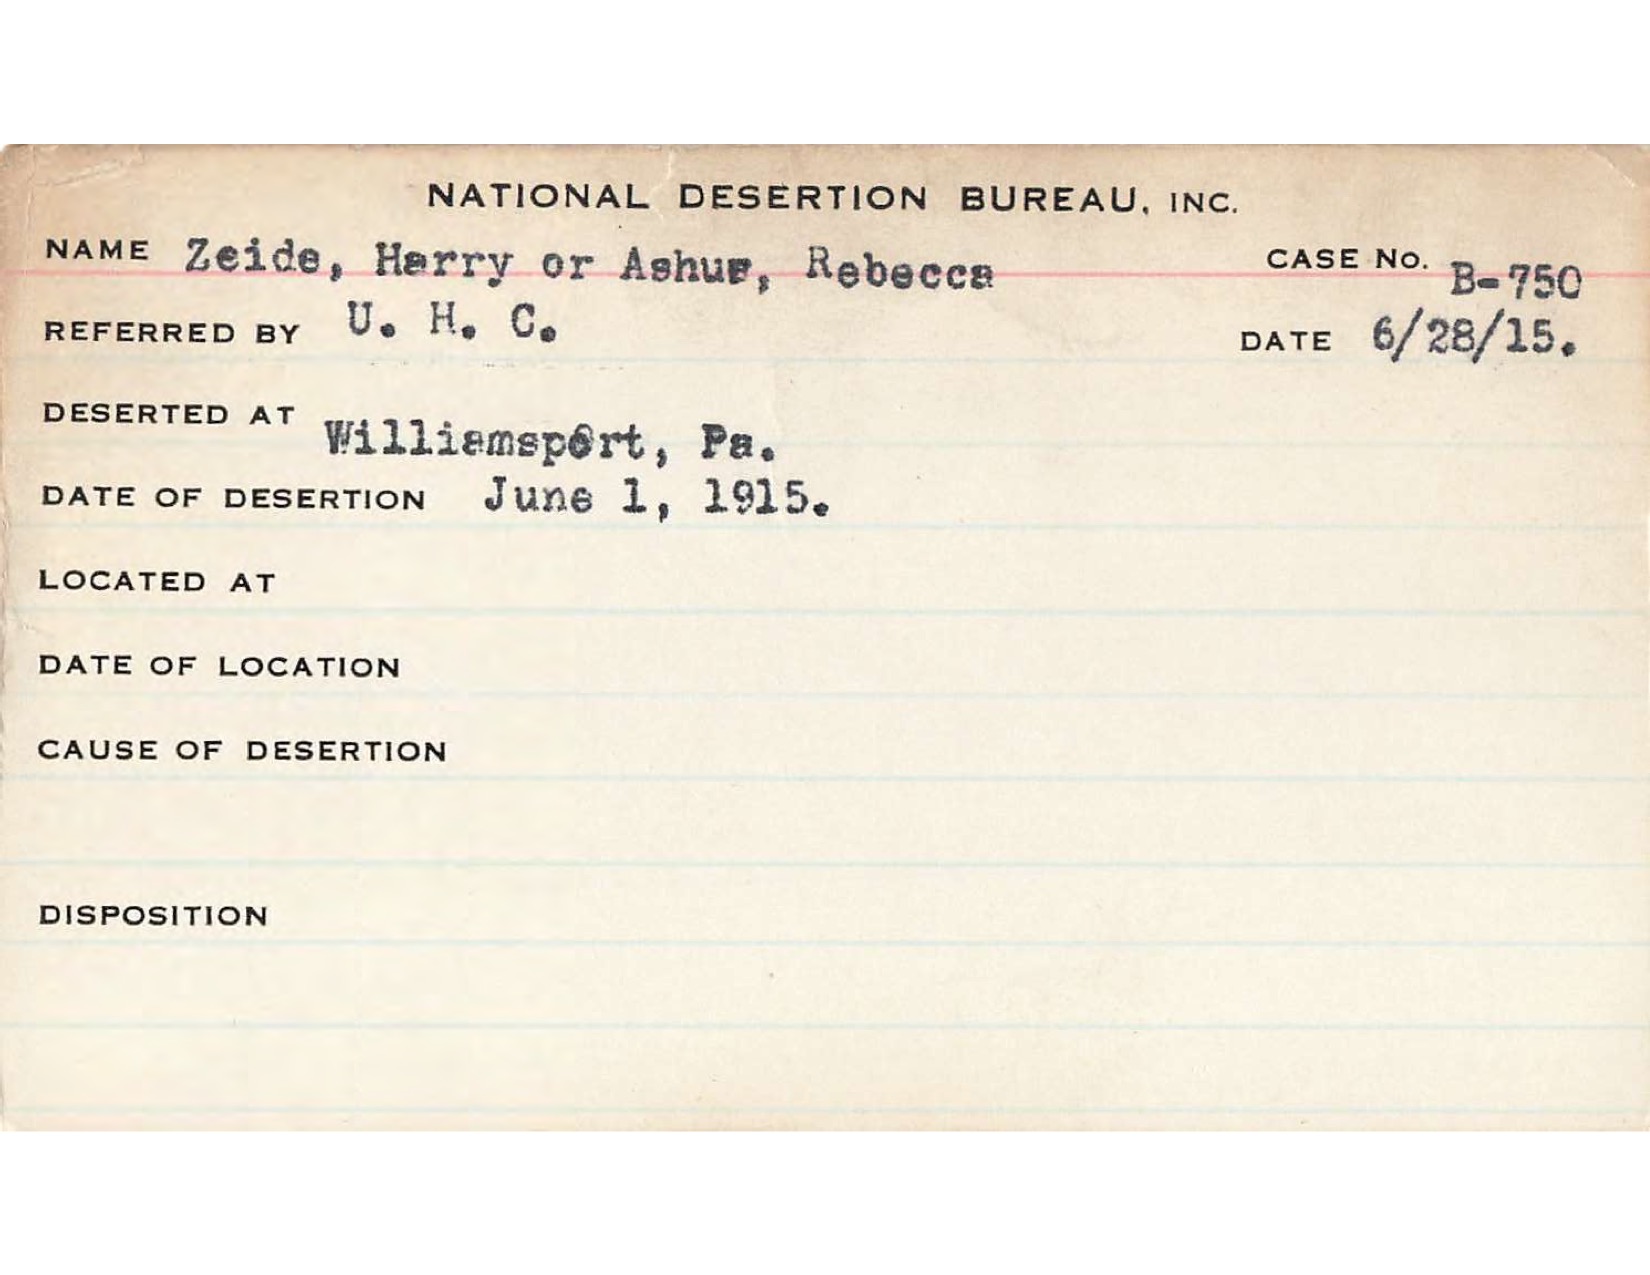 NATIONAL DESERTION BUREAU, INC.
NAME Zeide, Harry or Ashur, Rebecca CASE No. B-750
REFERRED BY U. H. C. DATE 6/28/15.
DESERTED AT Williamsport, Pa.
DATE OF DESERTION June 1, 1915.
LOCATED AT
DATE OF LOCATION
CAUSE OF DESERTION
DISPOSITION